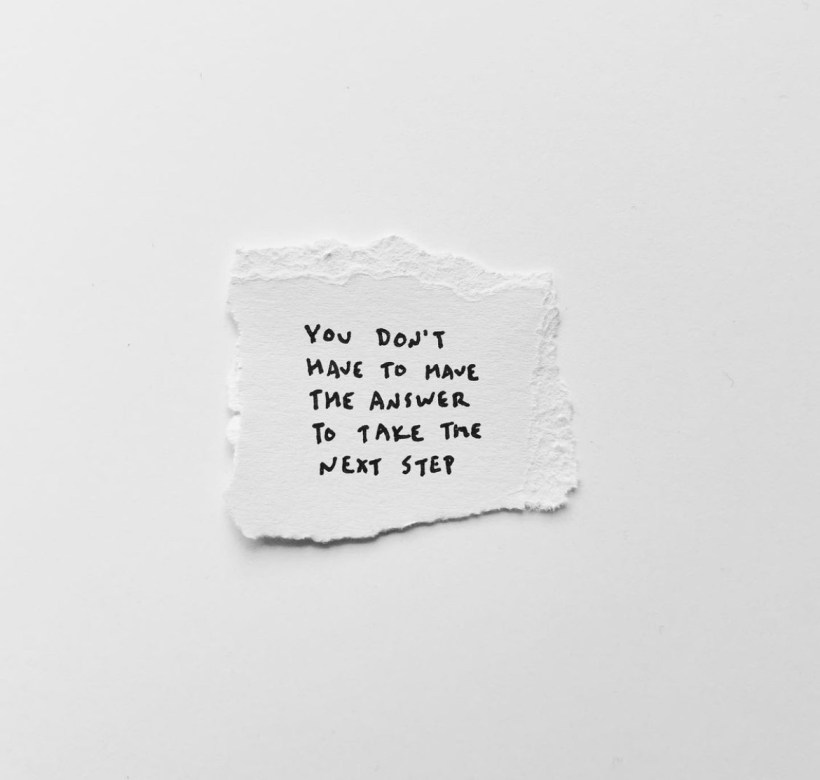 YOU DON'T
HAVE TO HAVE
THE ANSWER
TO TAKE THE
NEXT STEP